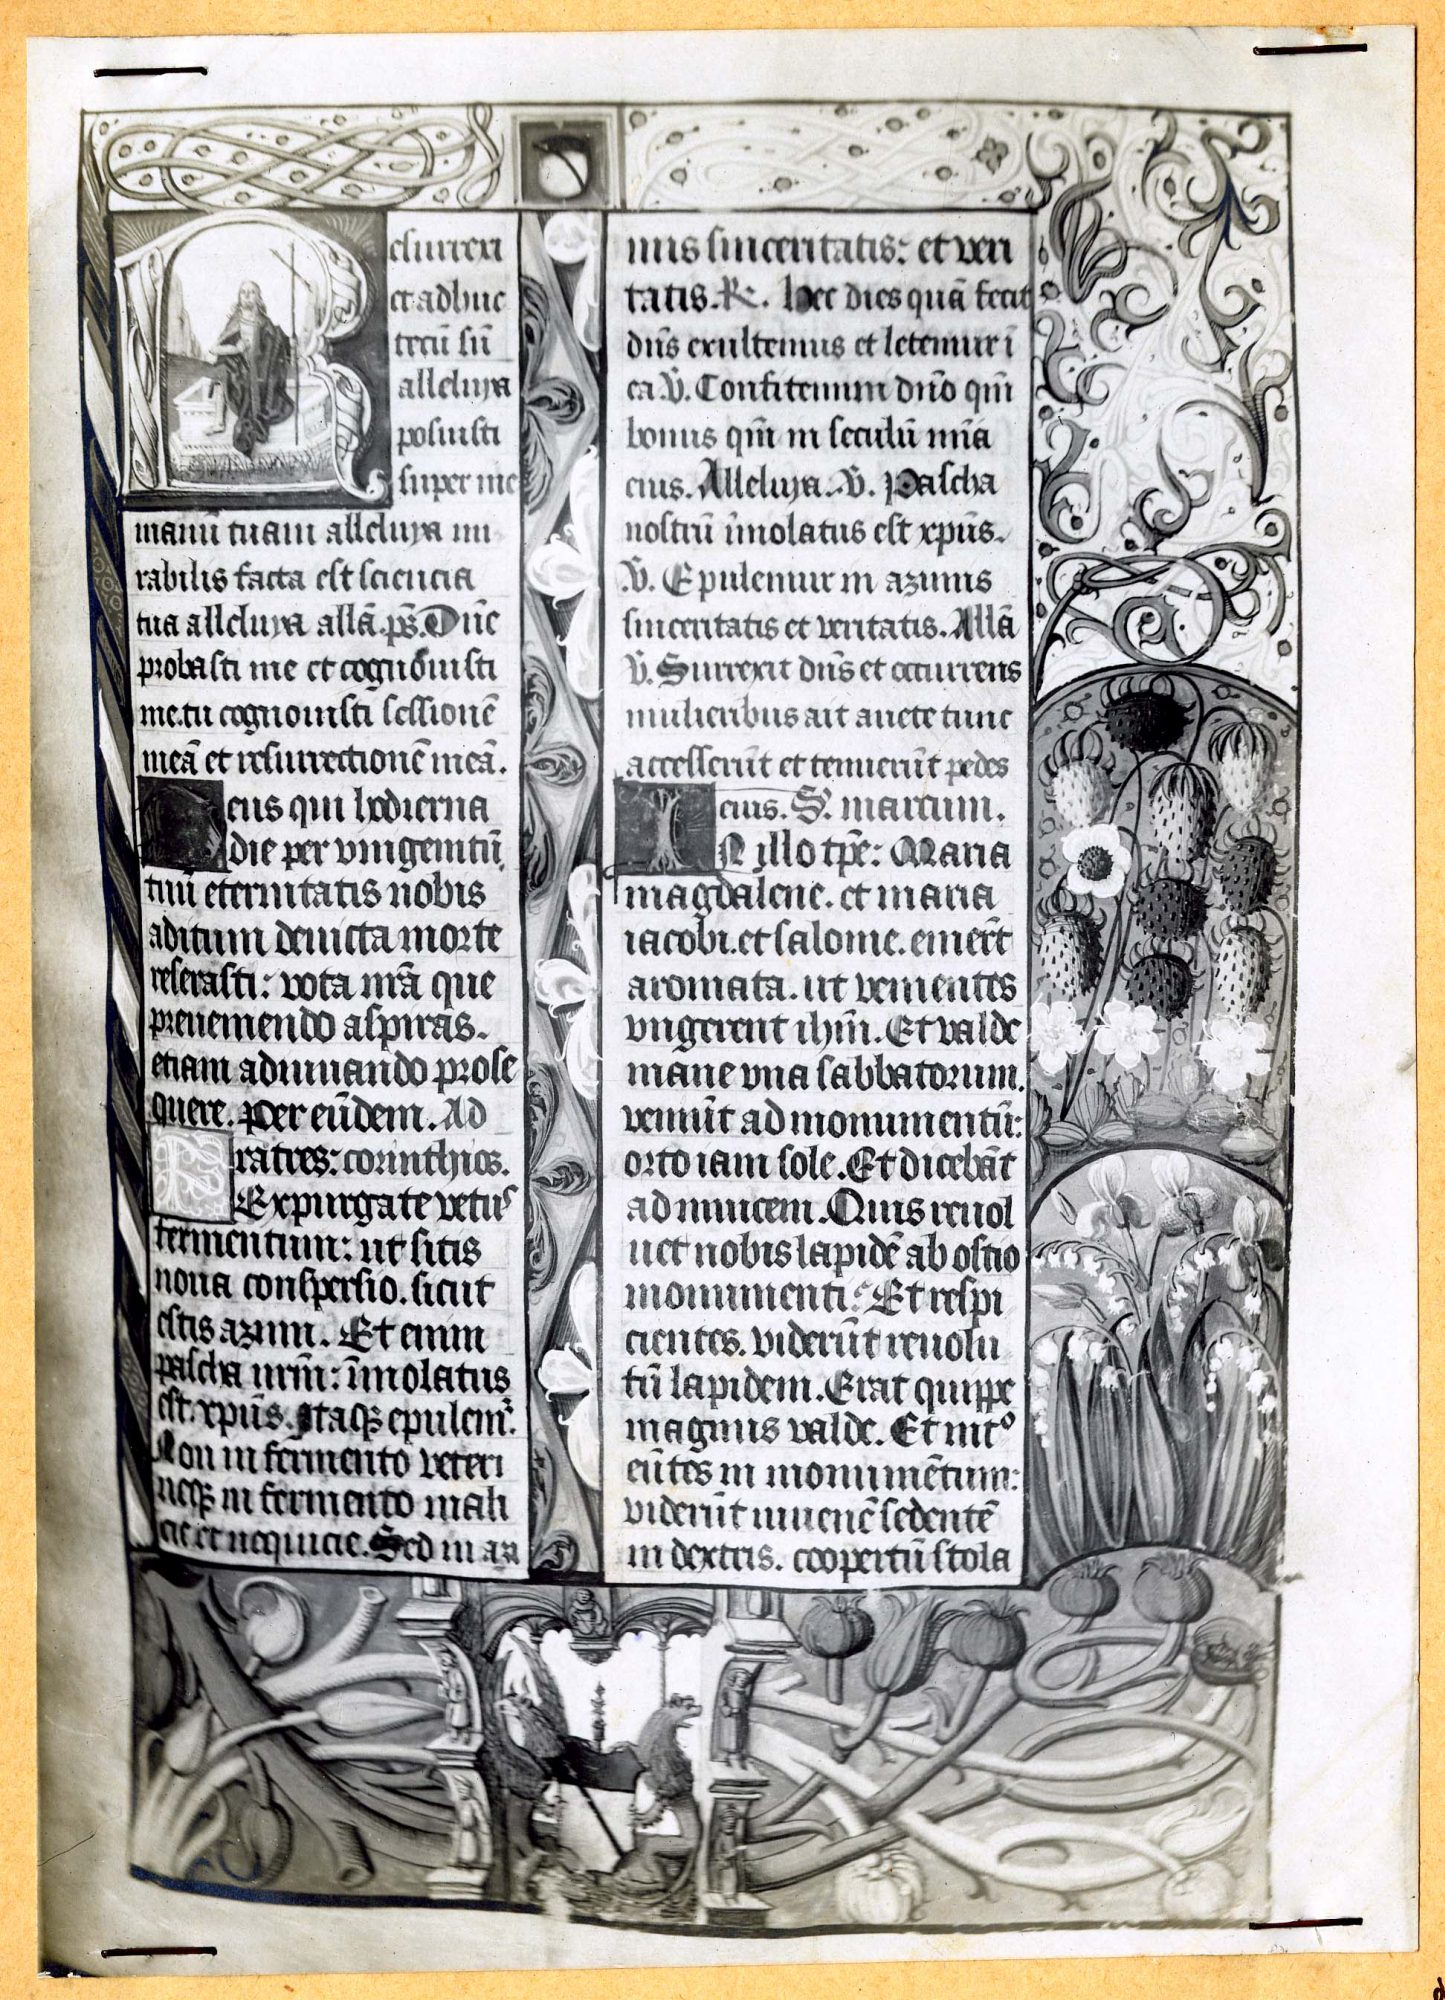 Resurrexi
et adhuc
tecū sū
alleluya
posuisti
super me
manū tuam alleluya mi
rabilis facta est sciencia
tua alleluya allā. ps̄. Dn̄e
probasti me et cognouisti
me. tu cognouisti sessionē
meā et resurrectionē meā.
Deus qui hodierna
die per vnigenitū
tuū eternitatis nobis
aditum deuicta morte
reserasti: vota nr̄a que
preueniendo aspiras.
etiam adiuuando prose
quere. Per eūdem. Ad
Fratres: corinthios.
Expurgate vetus
fermentum: ut sitis
noua conspersio. sicut
estis azimi. Et enim
pascha nrm̄: īmolatus
est. xpūs. Itaqꝫ epulem᷒.
Non in fermento veteri
neqꝫ in fermento mali
cie et nequicie. Sed in azi
mis sinceritatis: et veri
tatis. R. Hec dies quā fecit
dn̄s exultemus et letemur ī
ea V̄. Confitemini dn̄o qm̄
bonus qm̄ in seculū mīa
eius. Alleluya. V̄. Pascha
nostrū īmolatus est xpūs.
V̄. Epulemur in azimis
sinceritatis et veritatis. Allā
V̄. Surrexit dn̄s et occurrens
mulieribus ait auete tunc
accesserūt et tenuerūt pedes
eius. S̄. marcum.
IN illo tp̄e: Maria
magdalene. et maria
iacobi. et salome. emerūt
aromata. ut venientes
vngerent ihm̄. Et valde
mane vna sabbatorum.
veniūt ad monumentū:
orto iam sole. Et dicebāt
ad inuicem. Quis reuol
uet nobis lapidē ab ostio
monumenti? Et respi
cientes. viderūt reuolu
tū lapidem. Erat quippe
magnus valde. Et intᵒ
eūtes in monumētum:
viderūt iuuenē sedentē
in dextris. coopertū stola